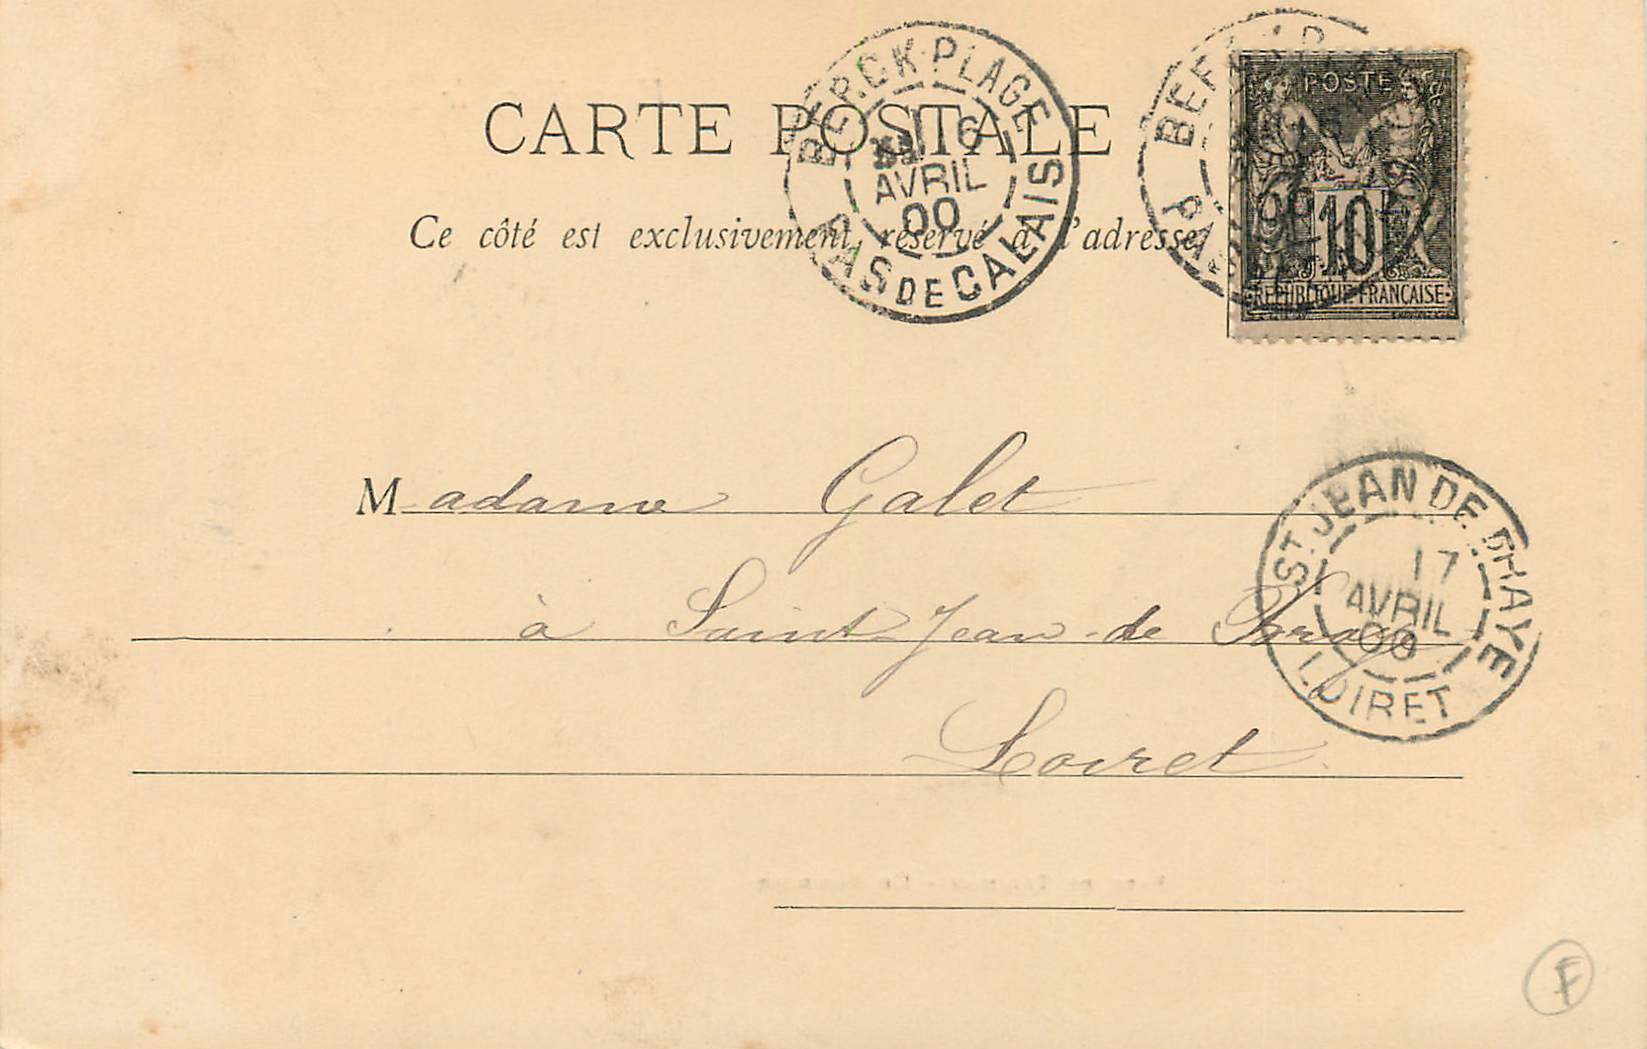 CARTE POSTALE
Ce côté est exclusivement réservé à l'adresse
BERCK-PLAGE
6
AVRIL
00
PAS DE CALAIS
POSTE
10
REPUBLIQUE FRANÇAISE
Madame Galet
à Saint-Jean-de Braye
Loiret
ST JEAN DE BRAYE
17
AVRIL
00
LOIRET
F